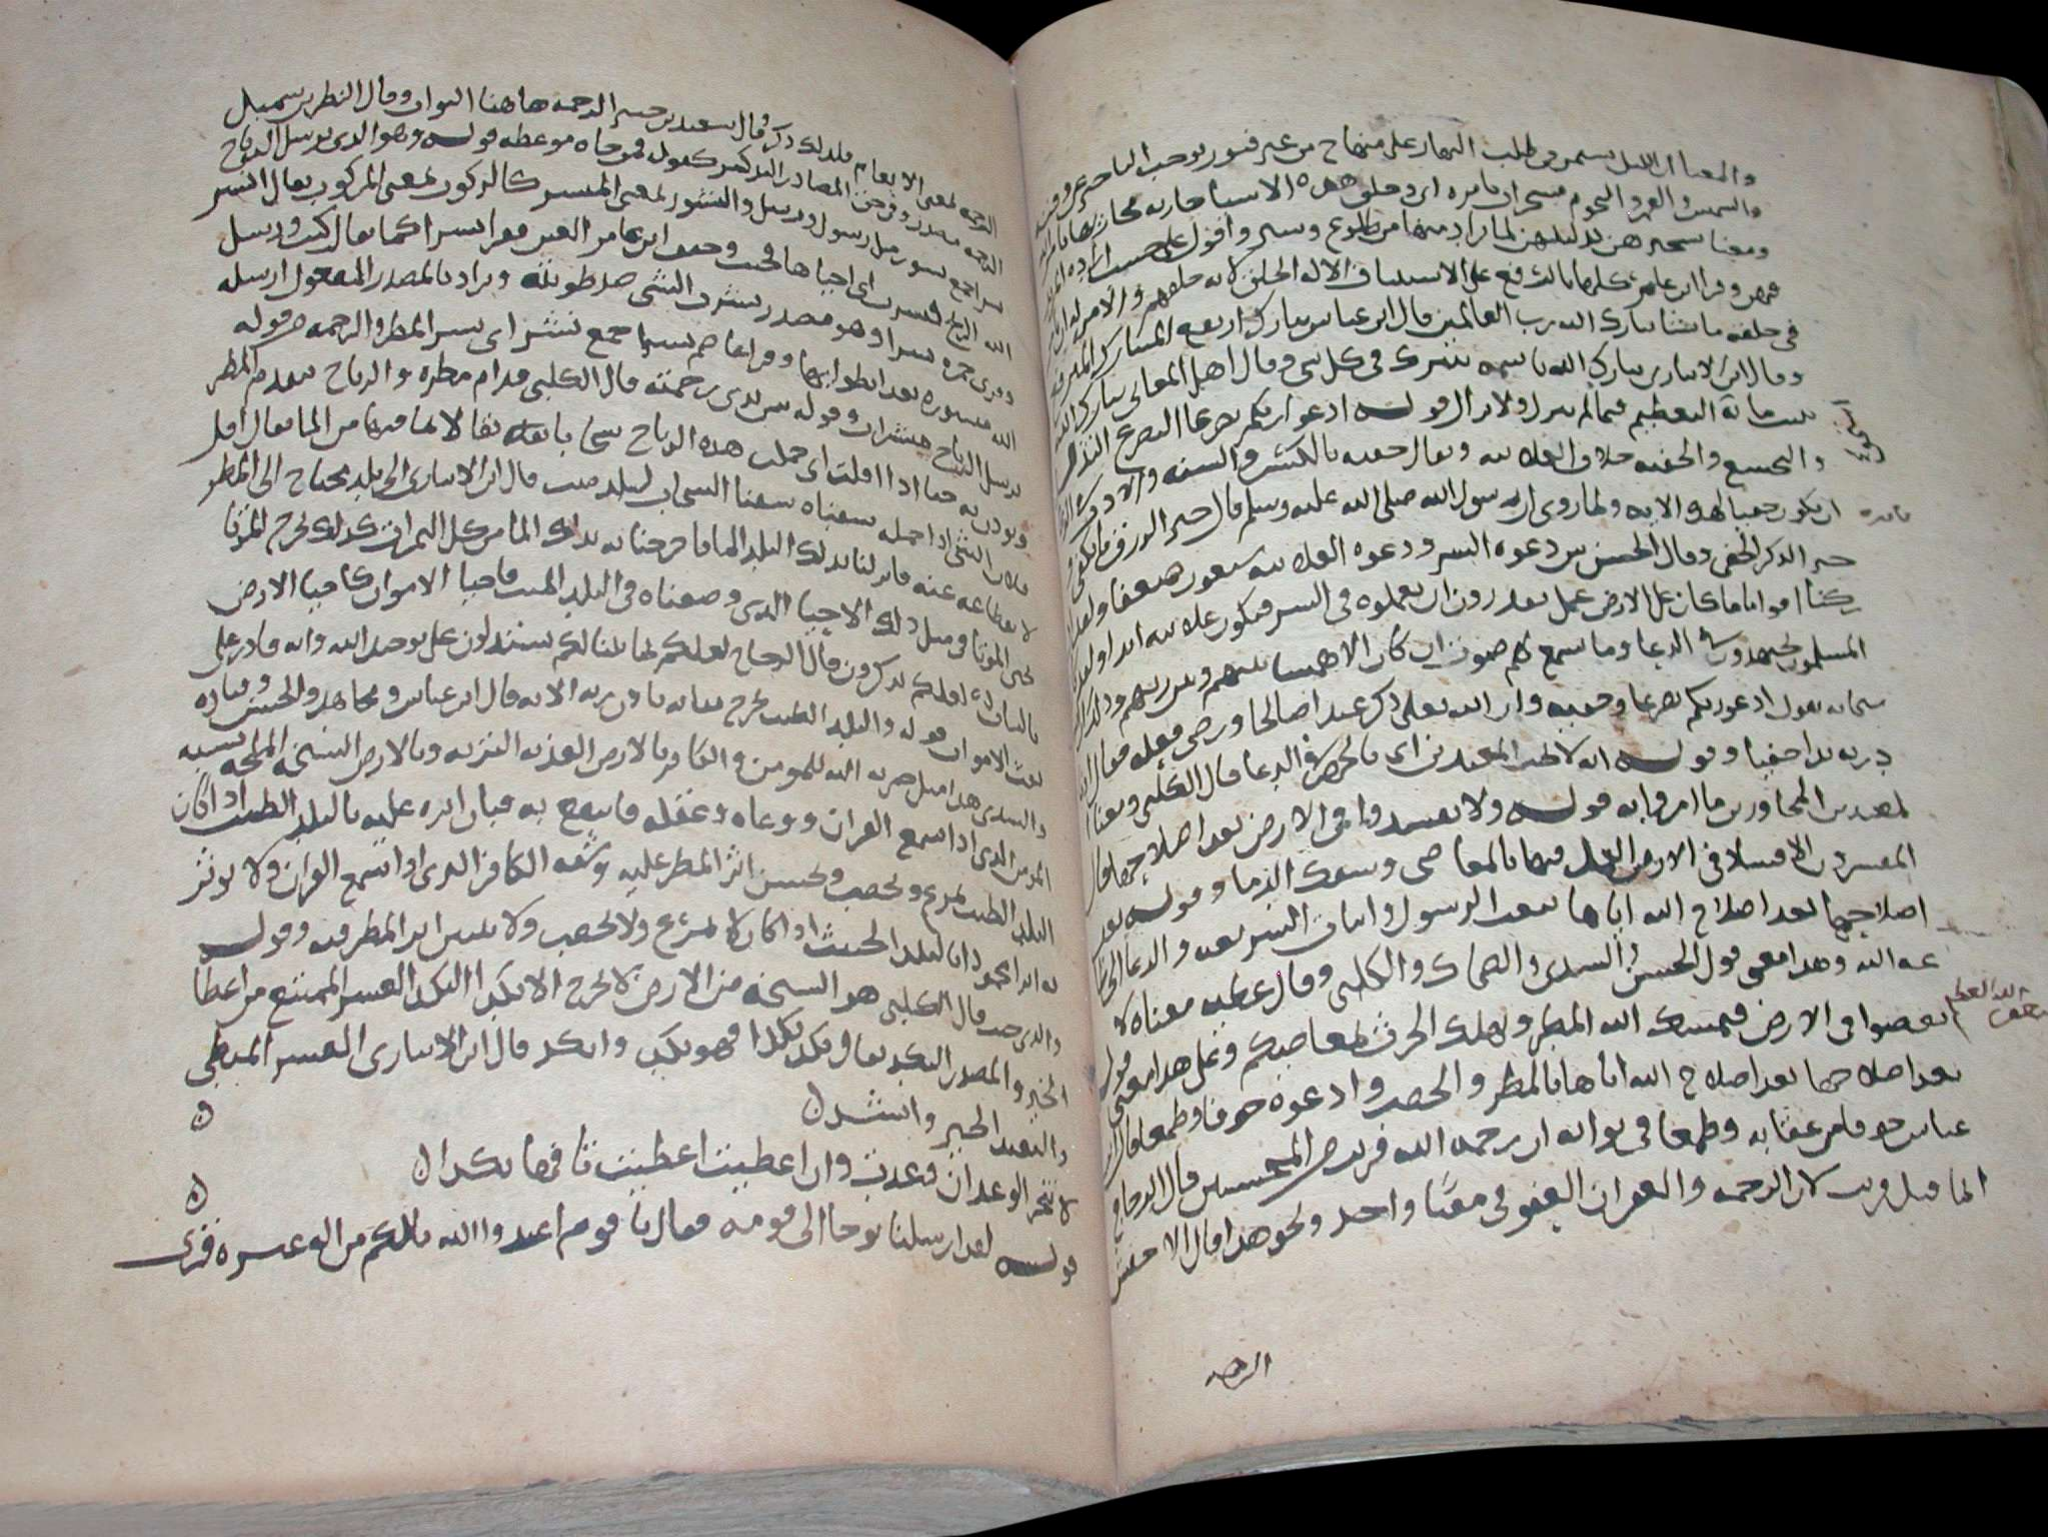 والمعنا ان الليل يستمر في طلب النهار على منهاج من غير فتور يوجب الناخير عن وقته
والشمس والقمر والنجوم مسخرات بامره اي وخلق هذه الاشيا جاريه مجاريها بامر الله
ومعنا تسخيرهن تذليلهن لما يراد منها من طلوع وسير وافول على حسب اراده المدبر
فيهن وقرا ابن عامر كلها بالرفع على الاستيناف الا له الخلق لانه خلقهم والامر له ان يامر
في خلقه ما شا تبارك الله رب العالمين قال ابن عباس تبارك ارتفع المتبارك المرتفع
وقال ابن الانباري تبارك الله باسمه يتبرك في كل شي وقال اهل المعاني تبارك الله
ثبت ما به التعظيم فيما لم يزل ولا يزال قوله ادعوا ربكم تضرعا التضرع التذلل
والتخشع والخفيه خلاف العلانيه ويقال خفيه بالكسر والسنه والادب في الدعا
ان يكون خفيا لهذه الايه ولما روى ان رسول الله صلى الله عليه وسلم قال خير الرزق ما يكفي
خير الذكر الخفي وقال الحسن بين دعوه السر ودعوه العلانيه سبعون ضعفا ولقد
ادركنا اقواما ما كان على الارض عمل يقدرون ان يعملوه في السر فيكون علانيه ابدا ولقد كان
المسلمون يجتهدون في الدعا وما يسمع لهم صوت ان كان الا همسا بينهم وبين ربهم وذلك ان الله
سبحانه يقول ادعوا ربكم تضرعا وخفيه وان الله تعالى ذكر عبدا صالحا ورضي فعله فقال اذ نادى
ربه ندا خفيا وقوله انه لا يحب المعتدين اي بالجهر في الدعا قال الكلبي ومعنا
المعتدين المجاوزين ما امروا به قوله ولا تفسدوا في الارض بعد اصلاحها قال
المفسرون لا تفسدوا في الارض العمل فيها بالمعاصي وسفك الدما وقوله بعد
اصلاحها بعد اصلاح الله اياها ببعث الرسول وبيان الشريعه والدعا الى طاعه
الله وهذا معنى قول الحسن والسدي والضحاك والكلبي وقال عطيه معناه لا
تعصوا في الارض فيمسك الله المطر ويهلك الحرث بمعاصيكم وعلى هذا معنى قوله
بعد اصلاحها بعد اصلاح الله اياها بالمطر والخصب وادعوه خوفا وطمعا قال ابن
عباس خوفا من عقابه وطمعا في ثوابه ان رحمه الله قريب من المحسنين قال الزجاج
انما قيل قريب لان الرحمه والغفران العفو في معنا واحد ونحو هذا قال الاخفش
الرحمه
فايده
الرحمه لمعنى الانعام فلذلك ذكر وقال سعيد بن جبير الرحمه هاهنا الثواب وقال النضر بن شميل
الرحمه مصدر ومن حق المصادر التذكير كقوله فمن جاه موعظه قوله وهو الذي يرسل الرياح
نشرا جمع نشور مثل رسول ورسل والنشور بمعنى المنتشر كالركوب بمعنى المركوب يقال انشر
الله الريح فنشرت اي احياها فحييت وخفف ابن عامر العين فقرا نشرا كما يقال كتب ورسل
وقرى حمزه نشرا وهو مصدر نشرت الشي ضد طويته ويراد بالمصدر المفعول ارسله
الله منشوره بعد انطوايها وقرا عاصم بشرا جمع بشير اي يبشر بالمطر والرحمه من قوله
يرسل الرياح مبشرات وقوله بين يدى رحمته قال الكلبي قدام مطره والرياح تقدم المطر
وتوذن به حتا اذا اقلت اي حملت هذه الرياح سحابا ثقالا لما فيها من الما يقال اقل
فلان الشي اذا حمله سقناه سقنا السحاب لبلد ميت قال ابن الانباري الى بلد يحتاج الى المطر
لانقطاعه عنه فانزلنا بذلك البلد الما فاخرجنا به بذلك الما من كل الثمرات كذلك نخرج الموتا
نحيي الموتا مثل ذلك الاحيا الذي وصفناه في البلد الميت فاحيا الاموات كاحيا الارض
بالنبات لعلكم تذكرون قال الزجاج لعلكم بما بينا لكم تستدلون على توحيد الله وانه قادر على
بعث الاموات قوله والبلد الطيب يخرج نباته باذن ربه الايه قال ابن عباس ومجاهد والحسن وقتاده
والسدي هذا مثل ضربه الله للمومن والكافر بالارض العذبه التربه وبالارض السبخه المالحه شبه
المومن الذي اذا سمع القران ووعاه وعقله فانتفع به فبان اثره عليه بالبلد الطيب اذا كان
البلد الطيب يمرع ويخصب ويحسن اثر المطر عليه وشبه الكافر الذي اذا سمع القران ولا يوثر
به اثرا محمودا بالبلد الخبيث اذا كان لا يمرع ولا يخصب ولا يتبين اثر المطر فيه وقوله
والذي خبث قال الكلبي هو السبخه من الارض لا يخرج الا نكدا النكد العسر الممتنع من اعطا
الخير والمصدر النكد يقال نكد ينكد نكدا فهو نكد وانكد قال ابن الانباري العسر المبطي
والبعيد الخير وانشد ن
لا تنجز الوعد ان وعدت وان اعطيت اعطيت تافها نكدا ن
قوله لقد ارسلنا نوحا الى قومه فقال يا قوم اعبدوا الله مالكم من اله غيره قرى